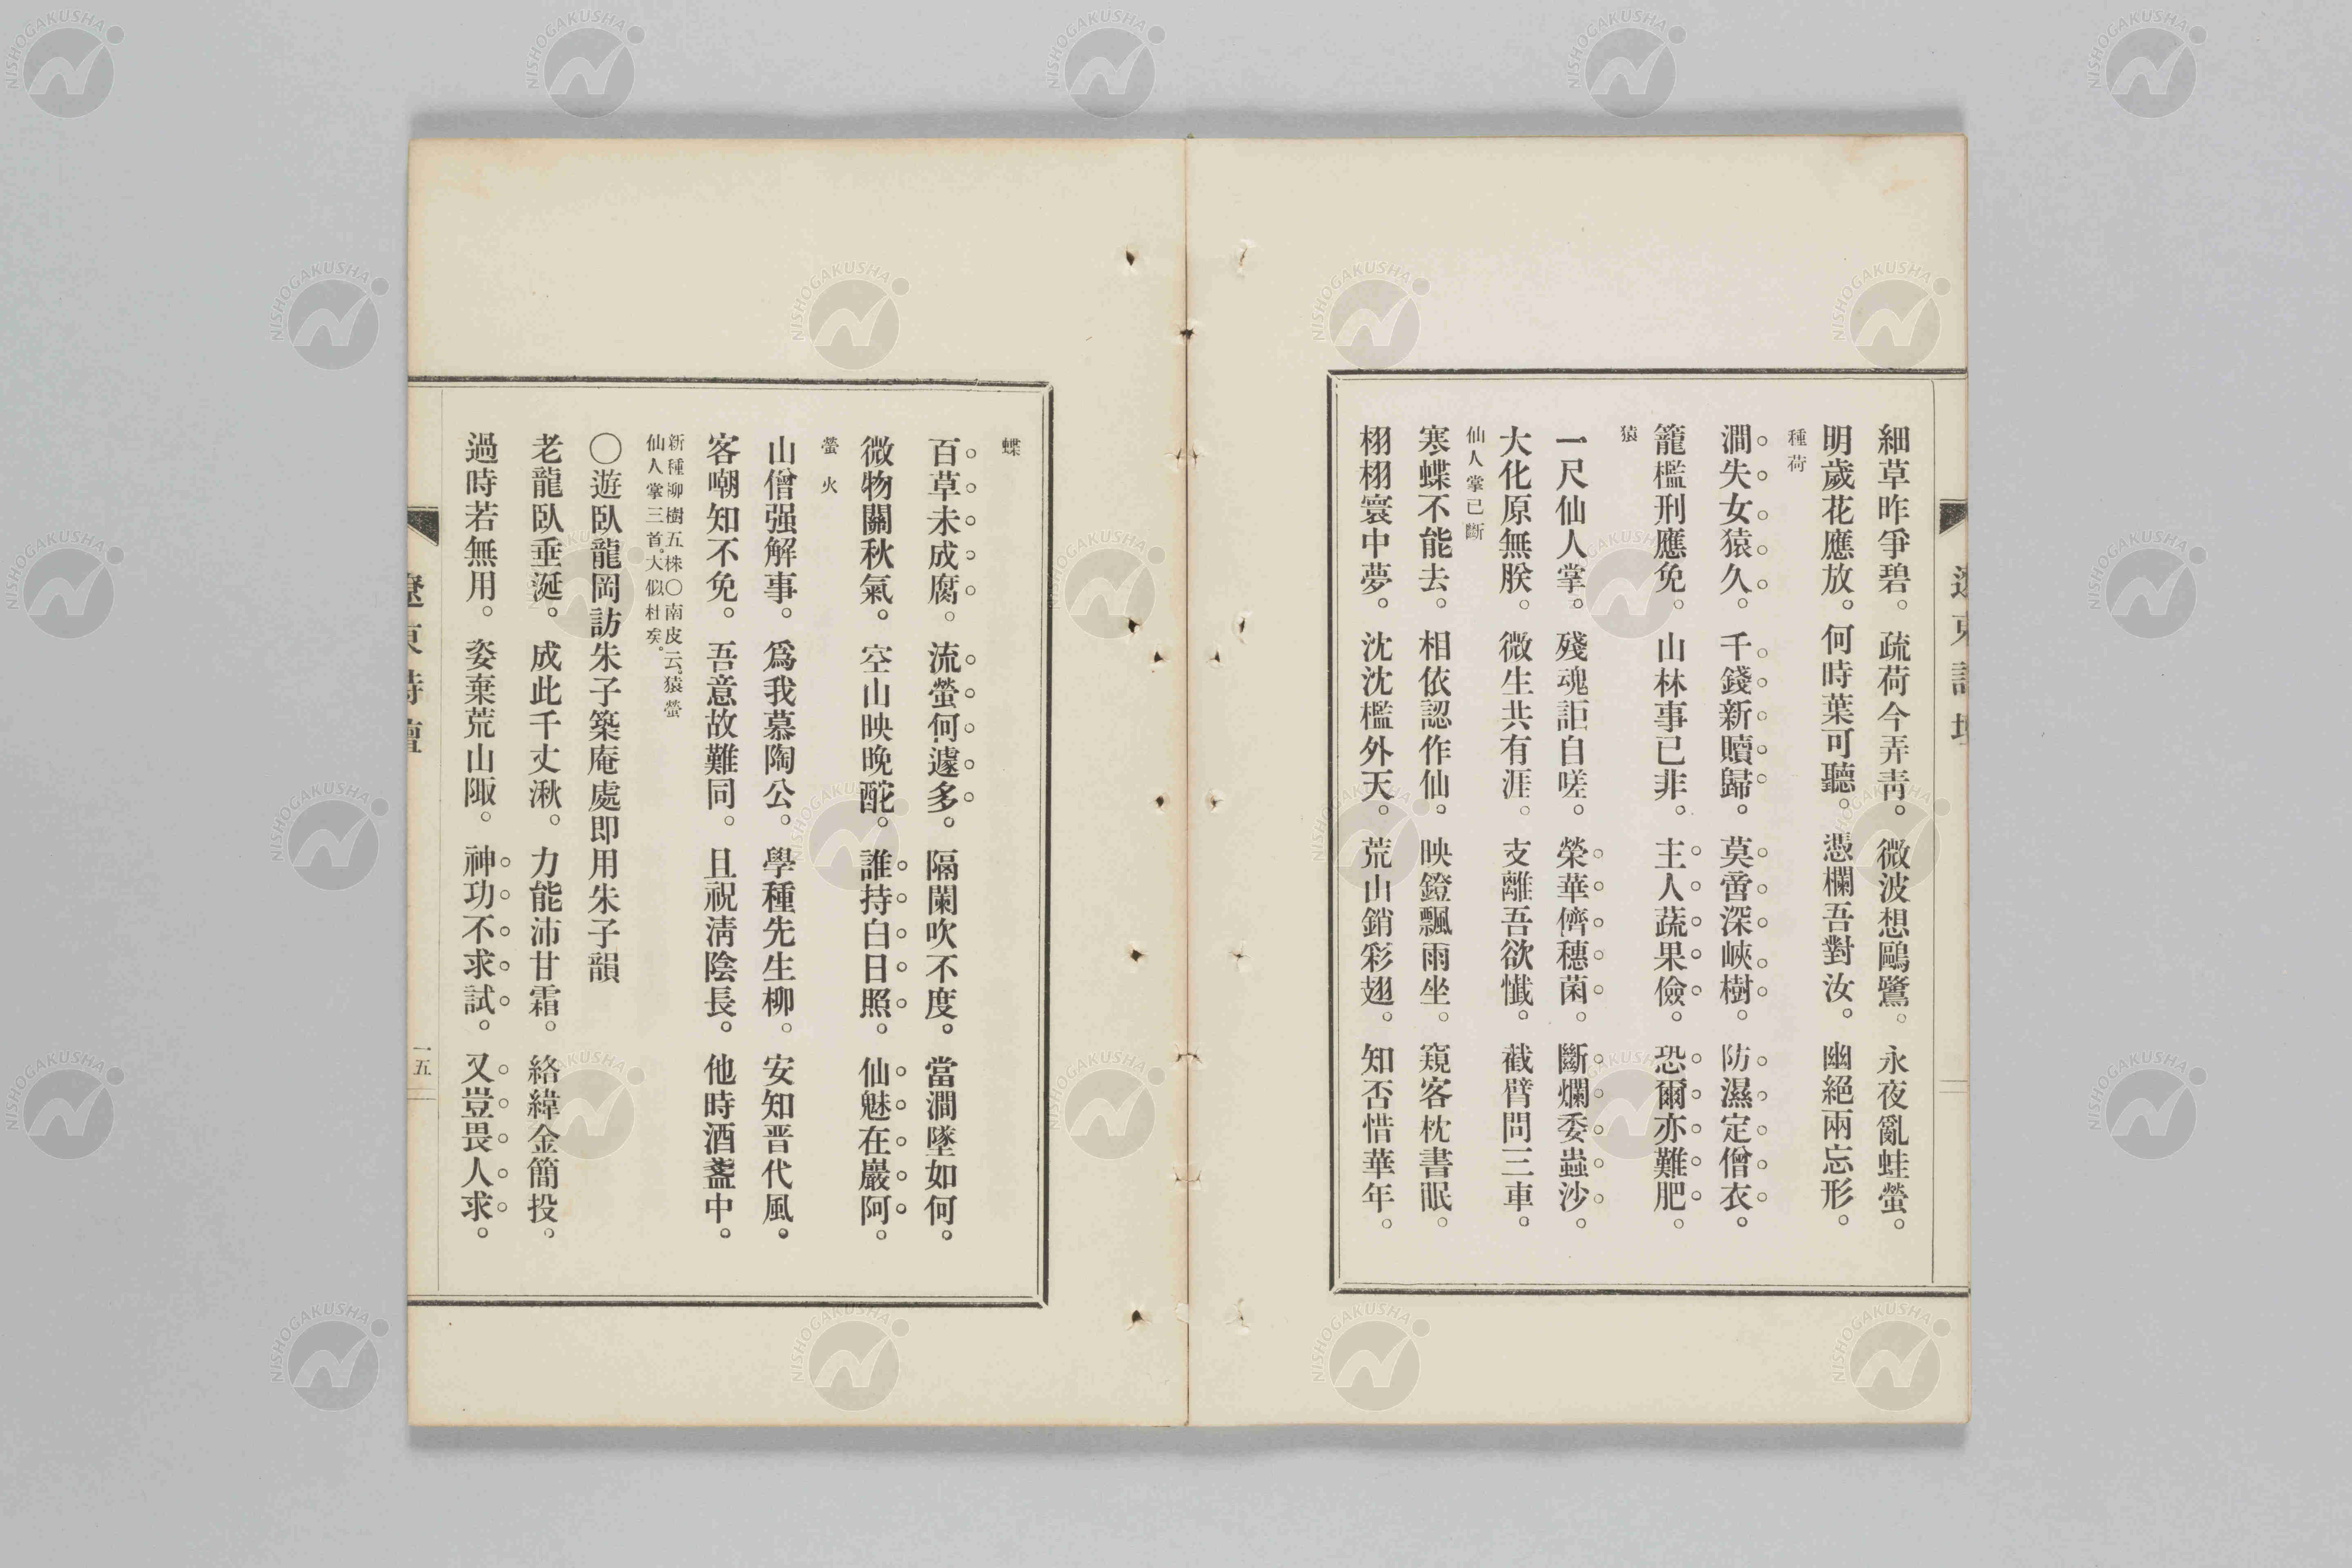 細草昨爭碧。疏荷今弄靑。微波想鷗鷺。永夜亂蛙螢。
明歲花應放。何時葉可聽。憑欄吾對汝。幽絕兩忘形。
種荷
澗失女猿久。千錢新贖歸。莫啻深峽樹。防濕定僧衣。
籠檻刑應免。山林事已非。主人蔬果儉。恐爾亦難肥。
猿
一尺仙人掌。殘魂詎自嗟。榮華儕穗菌。斷爛委蟲沙。
大化原無朕。微生共有涯。支離吾欲懺。截臂問三車。
仙人掌已斷
寒蝶不能去。相依認作仙。映鐙飄雨坐。窺客枕書眠。
栩栩寰中夢。沈沈檻外天。荒山銷彩翅。知否惜華年。
蝶
百草未成腐。流螢何遽多。隔闌吹不度。當澗墜如何。
微物關秋氣。空山映晚酡。誰持白日照。仙魅在巖阿。
螢火
山僧强解事。爲我慕陶公。學種先生柳。安知晋代風。
客嘲知不免。吾意故難同。且祝淸陰長。他時酒盞中。
新種柳樹五株〇南皮云猿螢
仙人掌三首。大似杜矣。
〇遊臥龍岡訪朱子築庵處即用朱子韻
老龍臥垂涎。成此千丈湫。力能沛甘霜。絡緯金簡投。
過時若無用。姿棄荒山陬。神功不求試。又豈畏人求。
遼東詩壇
一五
NISHOGAKUSHA